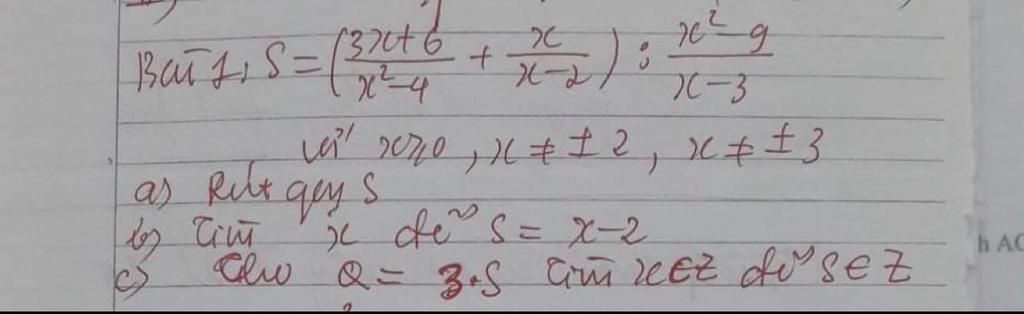 Bài 1, S = (3x+6/x²-4 + x/x-2) : x²-9/x-3
với x≥0, x ≠ ±2, x ≠ ±3
a) Rút gọn S
b) Tìm x để S = x-2
c) Cho Q = 3.S Tìm x∈Z để S∈Z
h AC